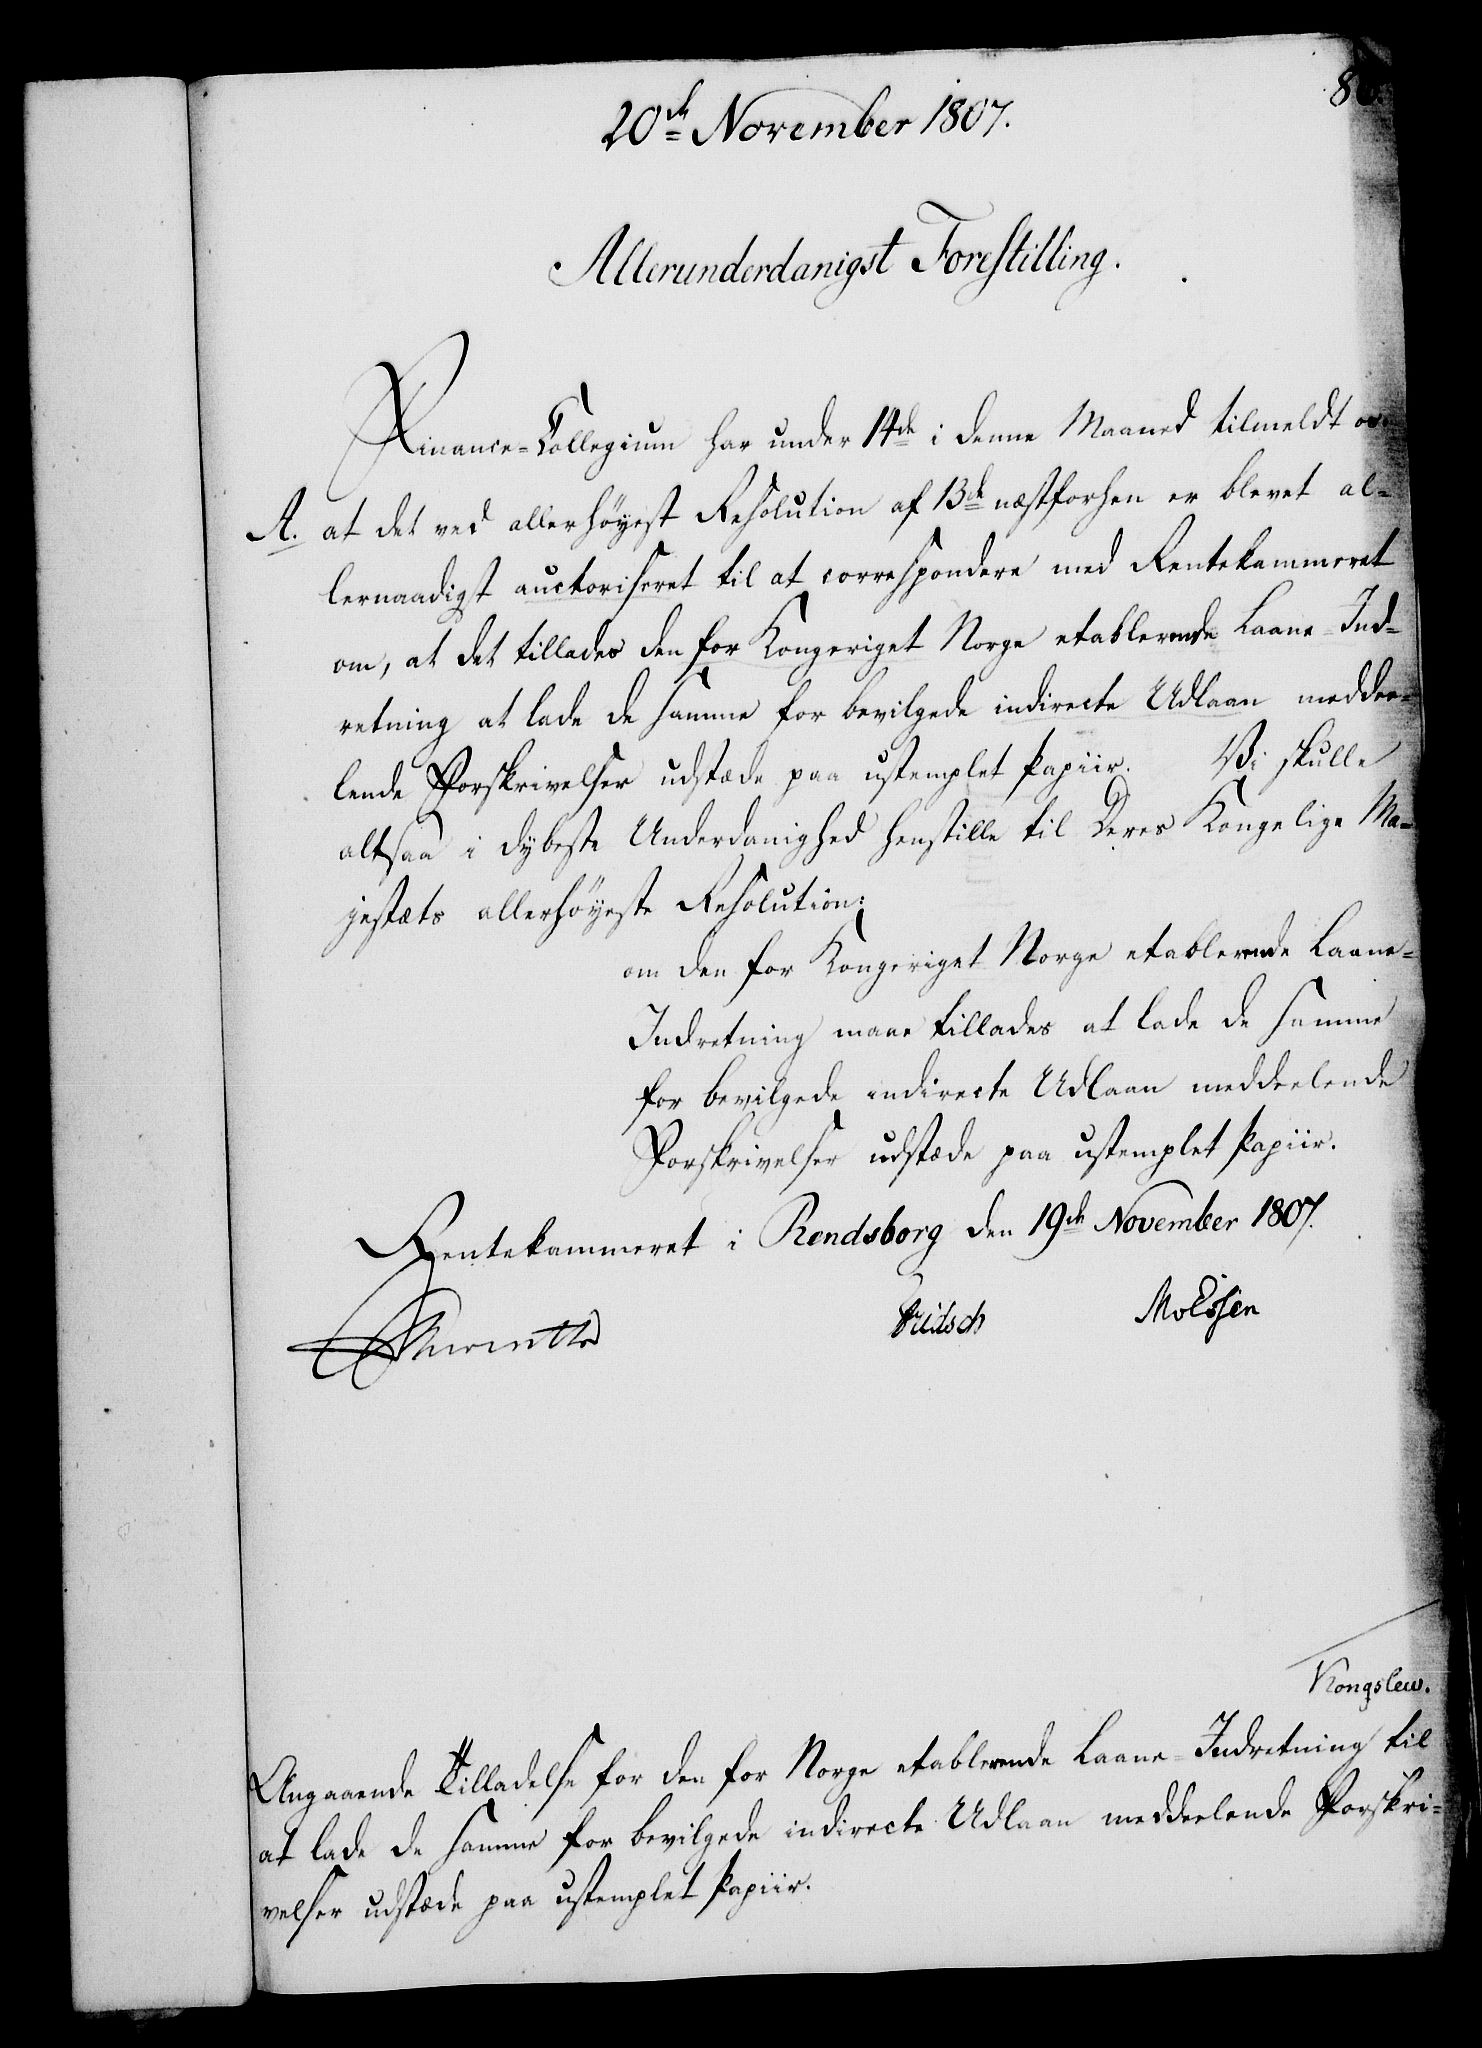 20de November 1807.
Allerunderdanigst Forestilling.
Finance-Collegium har under 14de i denne Maaned tilmeldt os
A. at det ved allerhöyest Resolution af 13de næstforhen er blevet al-
lernaadigst auctoriseret til at correspondere med Rentekammeret
om, at det tillades den for Kongeriget Norge etablerende Laane-Ind-
retning at lade de samme for bevilgede indirecte Udlaan meddee-
lende Forskrivelser udstæde paa ustemplet Papiir. Vi skulle
altsaa i dybeste Underdanighed henstille til Deres Kongelige Ma-
jestæts allerhöyeste Resolution:
om den for Kongeriget Norge etablerende Laane-
Indretning maae tillades at lade de samme
for bevilgede indirecte Udlaan meddeelende
Forskrivelser udstæde paa ustemplet Papiir.
Rentekammeret i Rendsborg den 19de November 1807.
Kongslew.
Angaaende Tilladelse for den for Norge etablerende Laane-Indretning til
at lade de samme for bevilgede indirecte Udlaan meddeelende Forskri-
velser udstæde paa ustemplet Papiir.